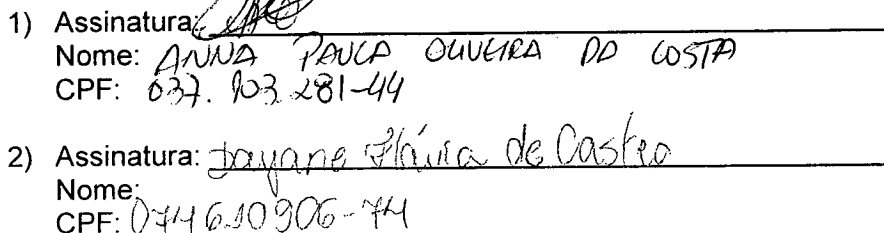 1) Assinatura:
Nome: ANNA PAULA OLIVEIRA DA COSTA
CPF: 037.903.281-44
2) Assinatura: Dayane Flávia de Castro
Nome:
CPF: 074610906-74